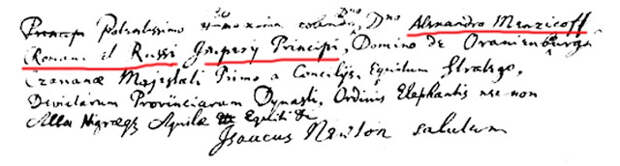 Principi Potentissimo maxime colendo Dno Dno Alexandro Menzicoff
Romani et Russi Imperij Principi, Domino de Oranienburgh
Czarianæ Majestati Primo a Concilijs, Equitum
Devictarum Provinciarum Dynasti, Ordinis Elephantis nec non
Aquilæ Equiti &c
Isaacus Newton salutem